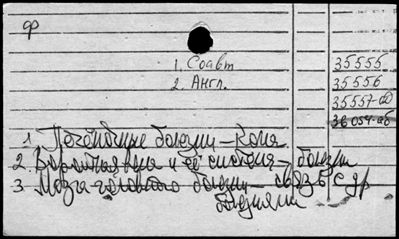 ф
1. Соавт 35555
2. Англ. 35556
35557-аб
36054-аб
1. Печеночные болезни - Кома
2. Воротная вена и её система - болезни
3. Мозга головного болезни - связь с др
болезнями